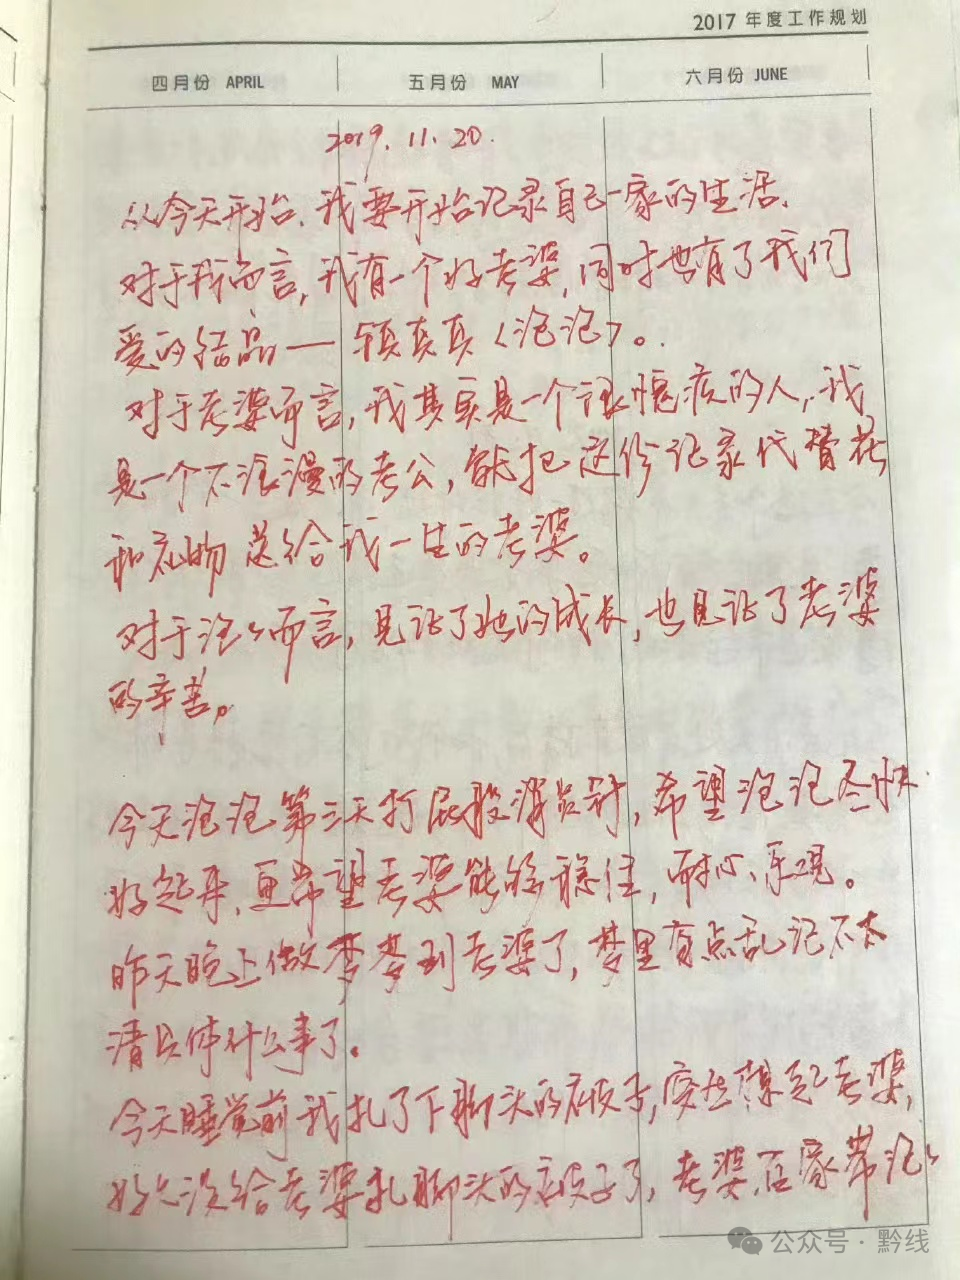 2017 年度工作规划
四月份 APRIL 五月份 MAY 六月份 JUNE
2019.11.20.
从今天开始,我要开始记录自己一家的生活.
对于我而言,我有一个好老婆,同时也有了我们
爱的结晶——真真(泡泡)。
对于老婆而言,我其实是一个很愧疚的人,我
是一个不浪漫的老公,就把这份记录代替花
和礼物送给我一生的老婆。
对于泡泡而言,见证了她的成长,也见证了老婆
的辛苦。
今天泡泡第三天打屁股消炎针,希望泡泡尽快
好起来,更希望老婆能够稳住,耐心、乐观。
昨天晚上做梦梦到老婆了,梦里有点乱记不太
清具体什么事了。
今天睡觉前我扎了下脚头的被子,突然想起老婆,
好久没给老婆扎脚头的被子了,老婆在家带泡泡
公众号·黔线